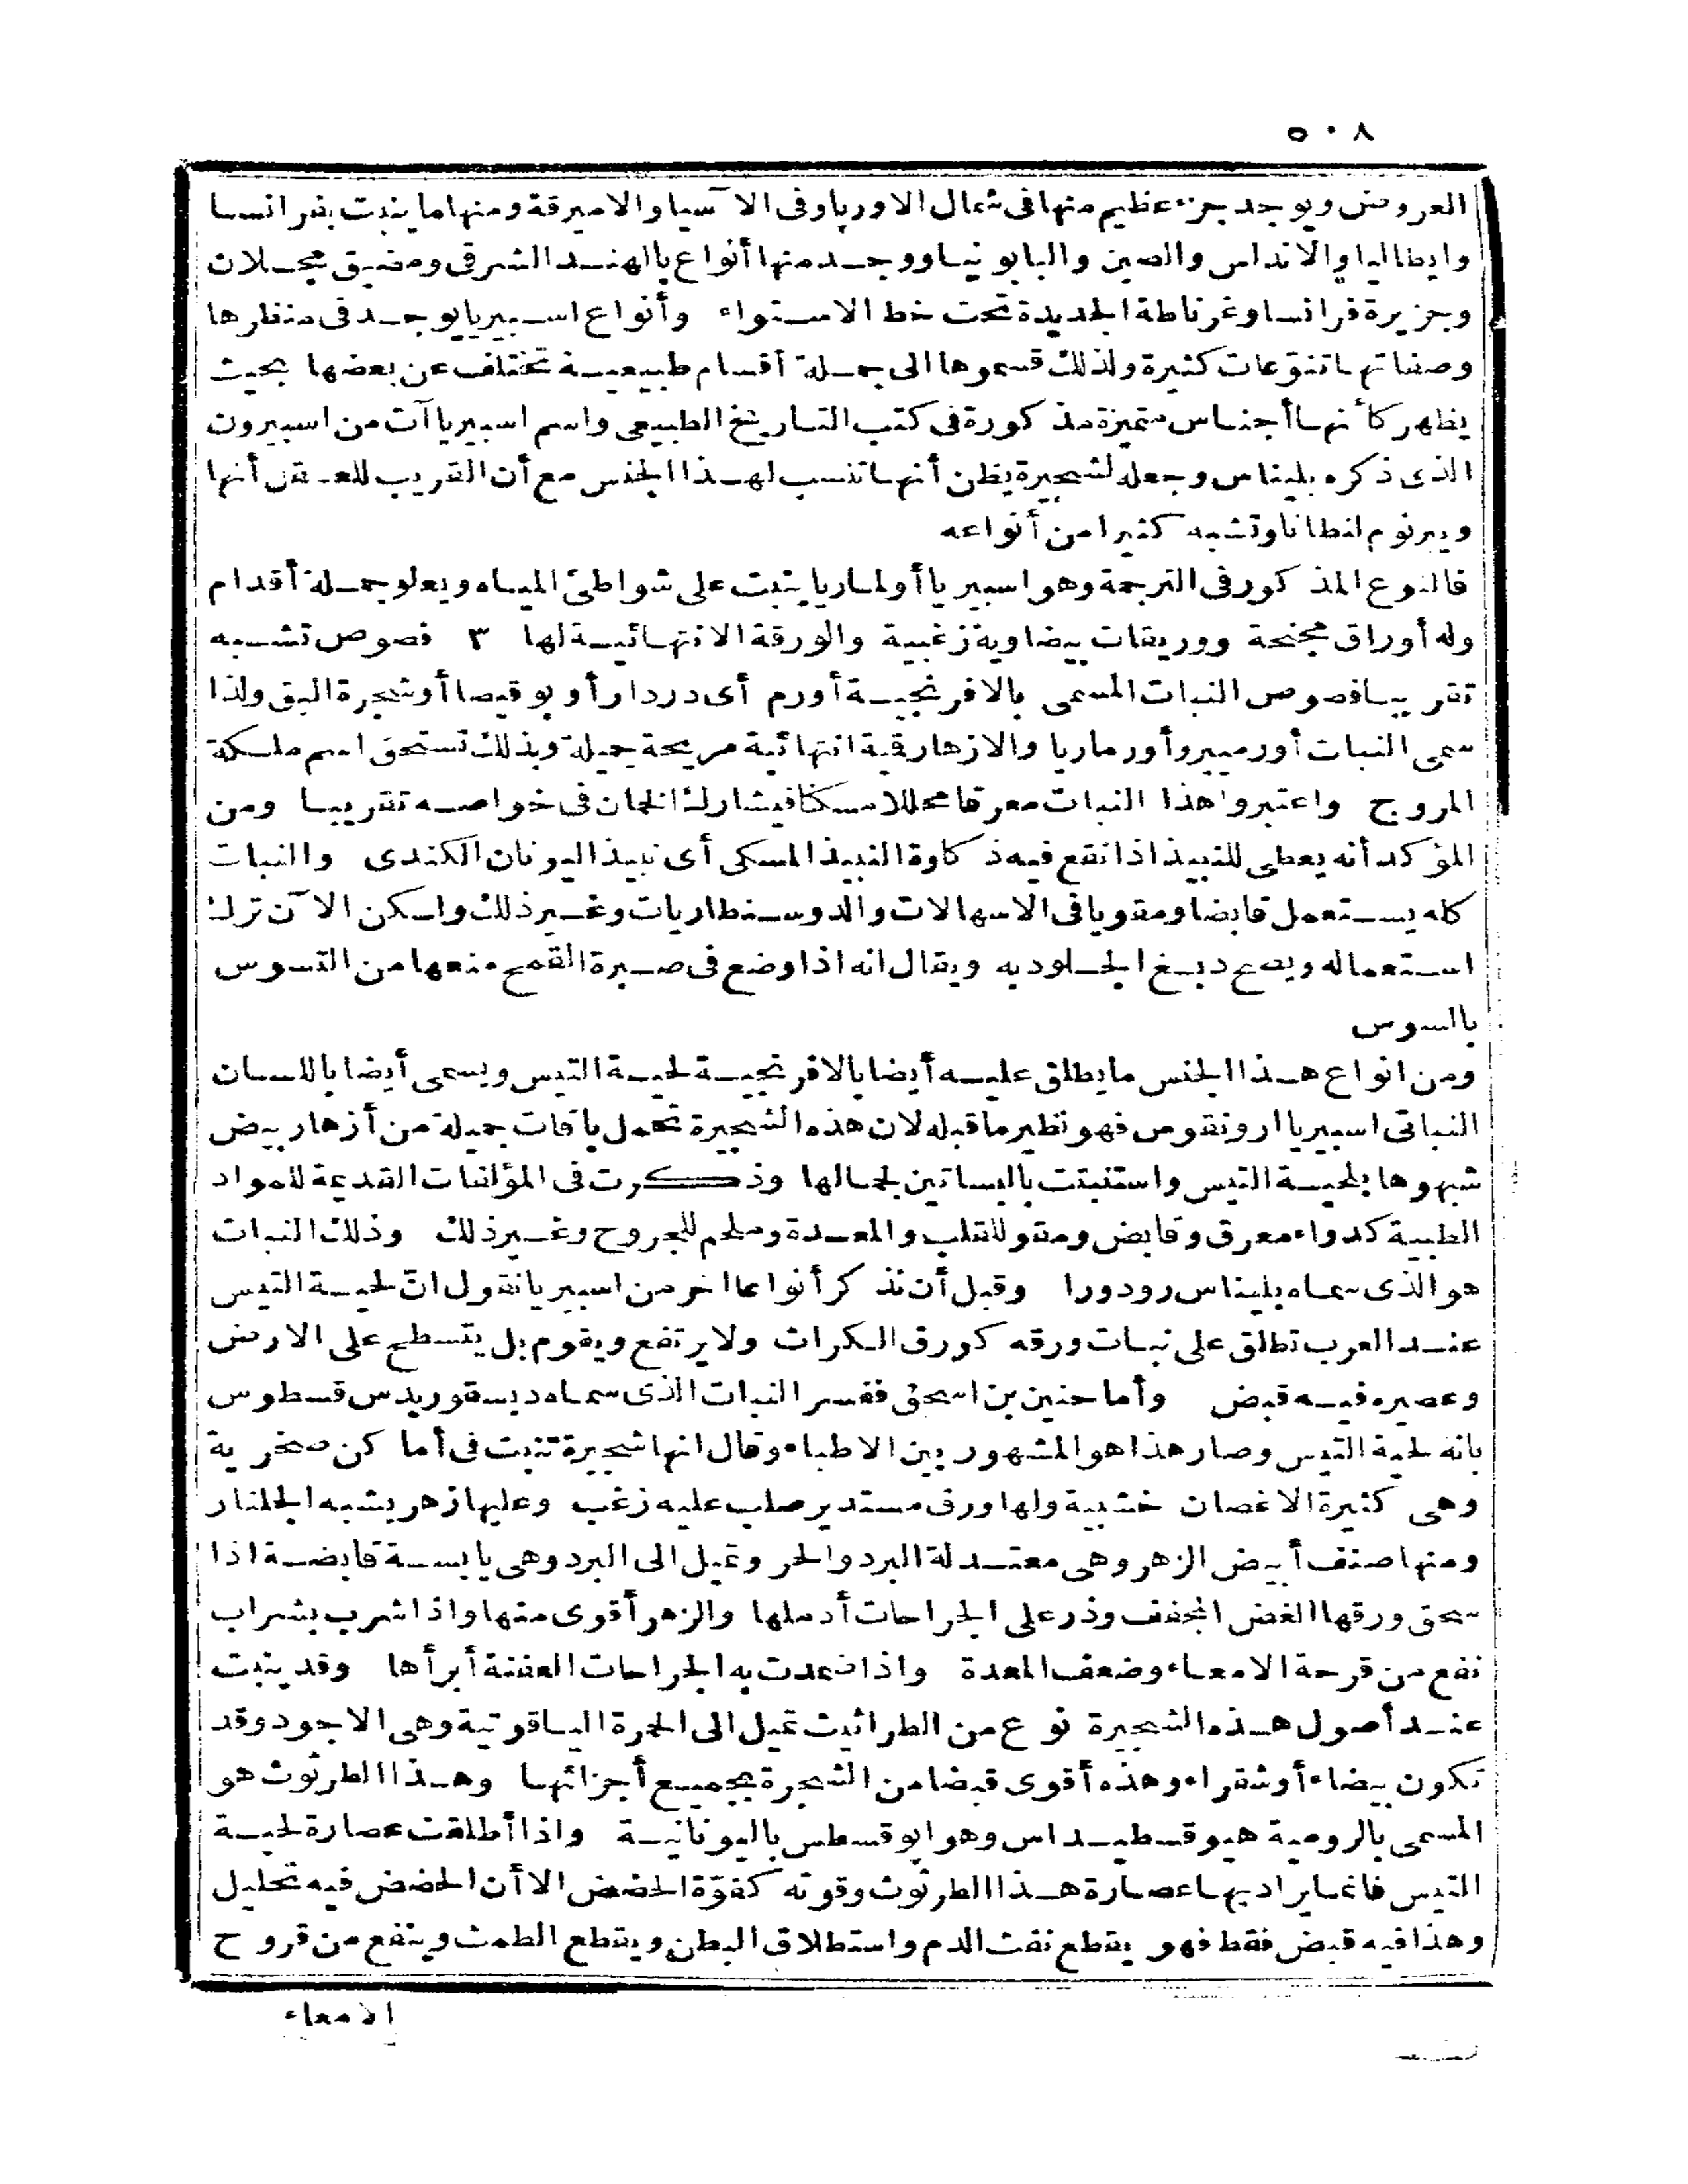 ٥٠٨
العروض ويوجد جزء عظيم منها فى شمال الاورپا وفى الآسيا والاميرقة ومنها ما ينبت بفرانسا
وايطاليا والاندلس والصين والبابونيا ووجد منها أنواع بالهند الشرقى ومضيق مجلان
وجزيرة فرانسا وغرناطة الجديدة تحت خط الاستواء وأنواع اسبيريا يوجد فى منظرها
وصفاتها تنوّعات كثيرة ولذلك قسموها الى جملة أقسام طبيعية تختلف عن بعضها بحيث
يظهر كأنها أجناس متميزة مذكورة فى كتب التاريخ الطبيعى واسم اسبيريا آت من اسبيرون
الذى ذكره بليناس وجعله لشجيرة يظن أنها تنسب لهذا الجنس مع أن القريب للعقل أنها
ويبرنوم لنطانا وتشبه كثيرا من أنواعه
فالنوع المذكور فى الترجمة وهو اسبيريا أولماريا ينبت على شواطئ المياه ويعلو جملة أقدام
وله أوراق مجنحة ووريقات بيضاوية زغبية والورقة الانتهائية لها ٣ فصوص تشبه
تقريبا فصوص النبات المسمى بالافرنجية أورم أى دردار أو بوقيصا أو شجرة البق ولذا
سمى النبات أورميير وأورماريا والازهار قية انتهائية مريحة جميلة وبذلك تستحق اسم ملكة
المروج واعتبروا هذا النبات معرقا محللا مسكنا فيشارك الخمان فى خواصه تقريبا ومن
المؤكد أنه يعطى للنبيذ اذا نقع فيه ذكاوة النبيذ المسكى أى نبيذ اليونان الكندى والنبات
كله يستعمل قابضا ومقويا فى الاسهالات والدوسنطاريات وغير ذلك ولكن الآن ترك
استعماله ويصح دبغ الجلود به ويقال انه اذا وضع فى صبرة القمح منعها من التسوس
بالسوس
ومن انواع هذا الجنس ما يطلق عليه أيضا بالافرنجية لحية التيس ويسمى أيضا باللسان
النباتى اسبيريا ارونقوس فهو نظير ما قبله لان هذه الشجيرة تحمل باقات جميلة من أزهار بيض
شبهوها بلحية التيس واستنبتت بالبساتين لجمالها وذكرت فى المؤلفات القديمة للمواد
الطبية كدواء معرق وقابض ومقو للقلب والمعدة وملحم للجروح وغير ذلك وذلك النبات
هو الذى سماه بليناس رودورا وقبل أن نذكر أنواعا اخر من اسبيريا نقول انّ لحية التيس
عند العرب تطلق على نبات ورقه كورق الكراث ولا يرتفع ويقوم بل يتسطح على الارض
وعصيره فيه قبض وأما حنين بن اسحق ففسر النبات الذى سماه ديسقوريدس قسطوس
بانه لحية التيس وصار هذا هو المشهور بين الاطباء وقال انها شجيرة تنبت فى أماكن صخرية
وهى كثيرة الاغصان خشبية ولها ورق مستدير صلب عليه زغب وعليها زهر يشبه الجلنار
ومنها صنف أبيض الزهر وهى معتدلة البرد والحر وتميل الى البرد وهى يابسة قابضة اذا
سحق ورقها الغض المجفف وذر على الجراحات أدملها والزهر أقوى منها واذا شرب بشراب
نفع من قرحة الامعاء وضعف المعدة واذا ضمدت به الجراحات العفنة أبرأها وقد ينبت
عند أصول هذه الشجيرة نوع من الطراثيث تميل الى الحمرة الياقوتية وهى الاجود وقد
تكون بيضاء أو شقراء وهذه أقوى قبضا من الشجرة بجميع أجزائها وهذا الطرثوث هو
المسمى بالرومية هيوقسطيداس وهو ابوقسطس باليونانية واذا أطلقت عصارة لحية
التيس فانما يراد بها عصارة هذا الطرثوث وقوته كقوّة الحضض الا أن الحضض فيه تحليل
وهذا فيه قبض فقط فهو يقطع نفث الدم واستطلاق البطن ويقطع الطمث وينفع من قروح
الامعاء